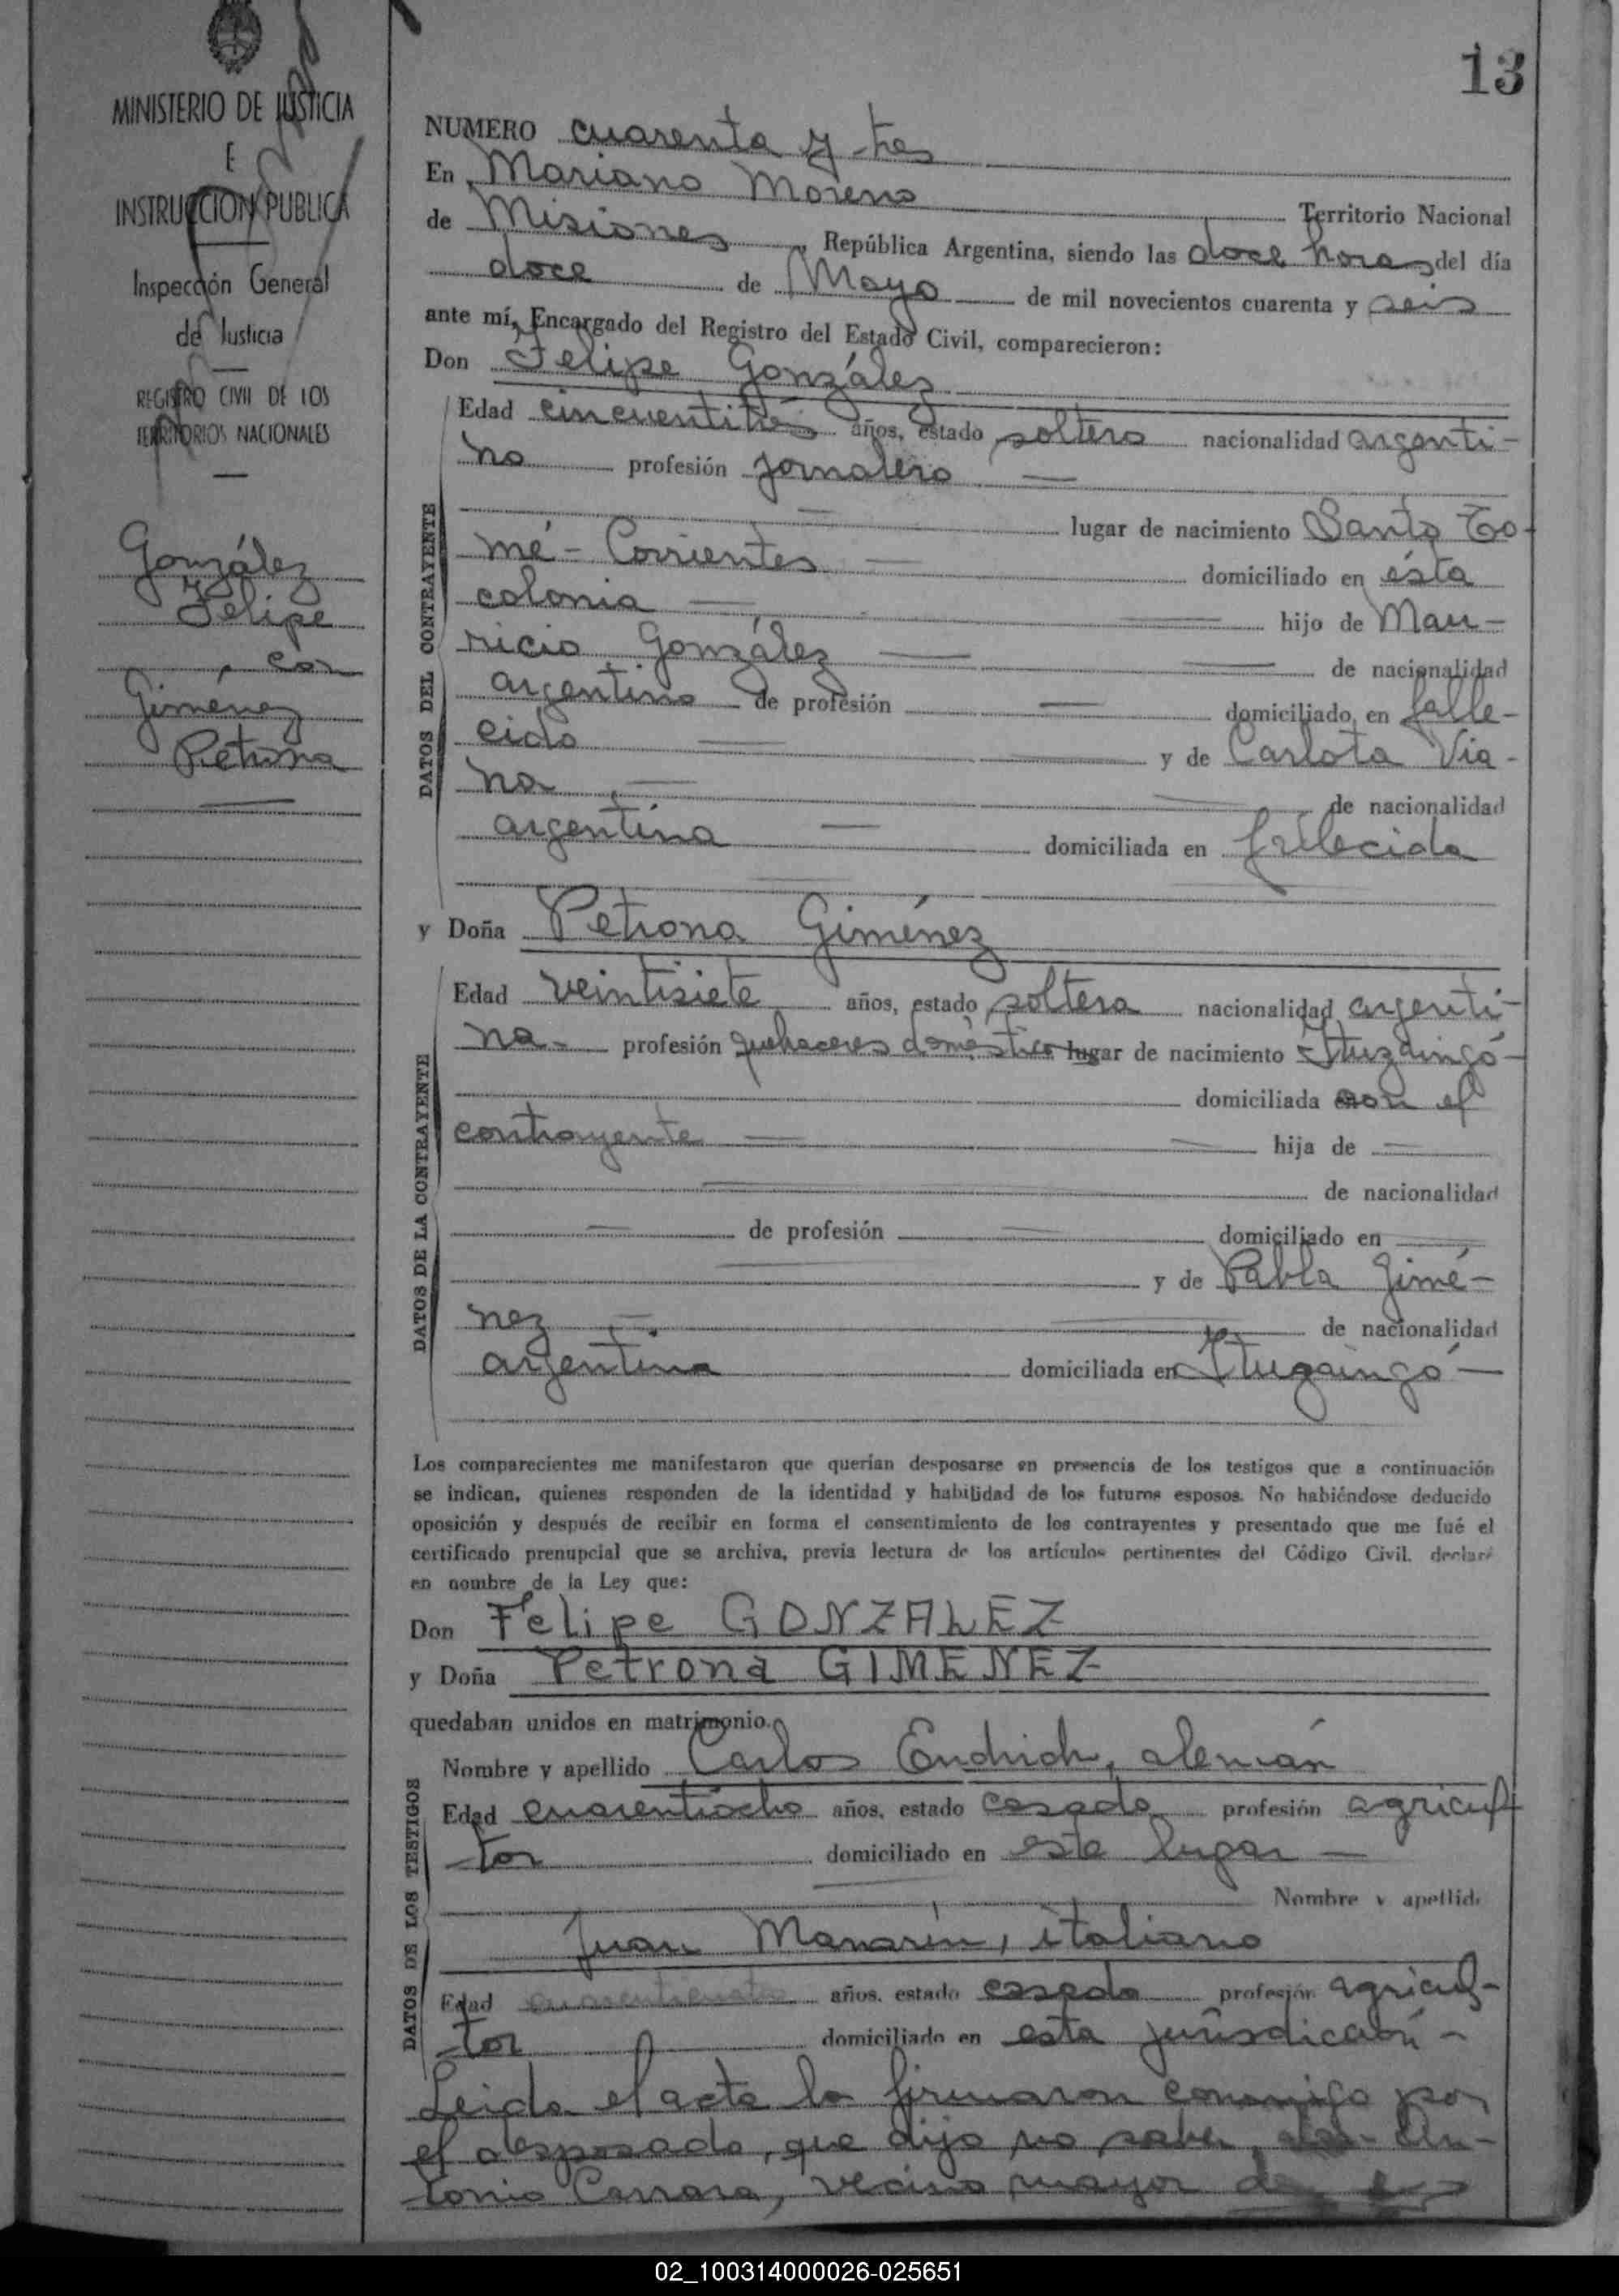 13
MINISTERIO DE JUSTICIA
E
INSTRUCCION PUBLICA
Inspección General
de Justicia
REGISTRO CIVIL DE LOS
TERRITORIOS NACIONALES
González
Felipe
con
Giménez
Petrona
NUMERO cuarenta y tres
En Mariano Moreno
Territorio Nacional
de Misiones, República Argentina, siendo las doce horas del día
doce de Mayo de mil novecientos cuarenta y seis
ante mí, Encargado del Registro del Estado Civil, comparecieron:
Don Felipe González
DATOS DEL CONTRAYENTE
Edad cincuentitrés años, estado soltero nacionalidad argenti-
no profesión jornalero
lugar de nacimiento Santo To-
mé - Corrientes domiciliado en ésta
colonia hijo de Mau-
ricio González de nacionalidad
argentino de profesión domiciliado en falle-
cido y de Carlota Via-
na de nacionalidad
argentina domiciliada en fallecida
y Doña Petrona Giménez
DATOS DE LA CONTRAYENTE
Edad veintisiete años, estado soltera nacionalidad argenti-
na - profesión quehaceres domésticos lugar de nacimiento Ituzaingó -
domiciliada con el
contrayente hija de
de nacionalidad
de profesión domiciliado en
y de Pabla Gimé-
nez de nacionalidad
argentina domiciliada en Ituzaingó -
Los comparecientes me manifestaron que querían desposarse en presencia de los testigos que a continuación
se indican, quienes responden de la identidad y habilidad de los futuros esposos. No habiéndose deducido
oposición y después de recibir en forma el consentimiento de los contrayentes y presentado que me fué el
certificado prenupcial que se archiva, previa lectura de los artículos pertinentes del Código Civil, declaré
en nombre de la Ley que:
Don Felipe GONZALEZ
y Doña Petrona GIMENEZ
quedaban unidos en matrimonio.
DATOS DE LOS TESTIGOS
Nombre y apellido Carlos Endrich, alemán
Edad cuarentiocho años, estado casado profesión agricul
tor domiciliado en este lugar -
Nombre y apellido
Juan Manarin, italiano
Edad años, estado casado profesión agricul-
tor domiciliado en esta jurisdicción -
Leida el acta la firmaron conmigo por
el desposado, que dijo no saber, An-
tonio Carrara, vecino mayor de
02_100314000026-025651